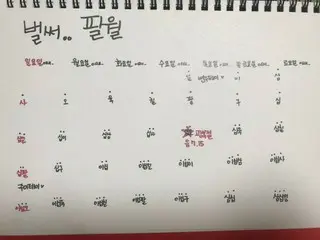 벌써.. 팔월
일요일 월요일 화요일 수요일 목요일 금요일 토요일
일 이 삼
사 오 육 칠 팔 구 십
십일 십이 십삼 십사 광복절 십육 십칠
8.15
십팔 십구 이십 이십일 이십이 이십삼 이십사
이십오 이십육 이십칠 이십팔 이십구 삼십 삼십일